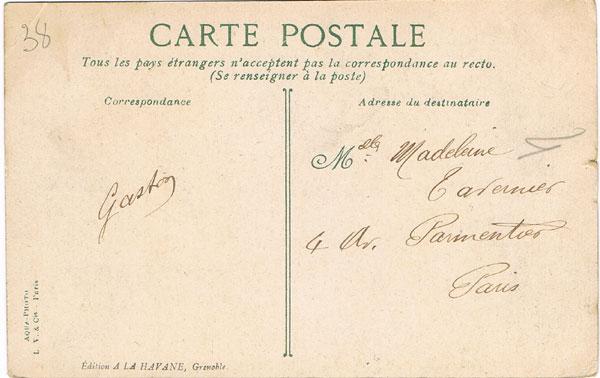 38
CARTE POSTALE
Tous les pays étrangers n'acceptent pas la correspondance au recto.
(Se renseigner à la poste)
Correspondance
Adresse du destinataire
Gaston
Mdlle Madeleine
Tavernier
4 Av. Parmentier
Paris
AQUA-PHOTO
L. V. & Cie - Paris
Édition A LA HAVANE, Grenoble.